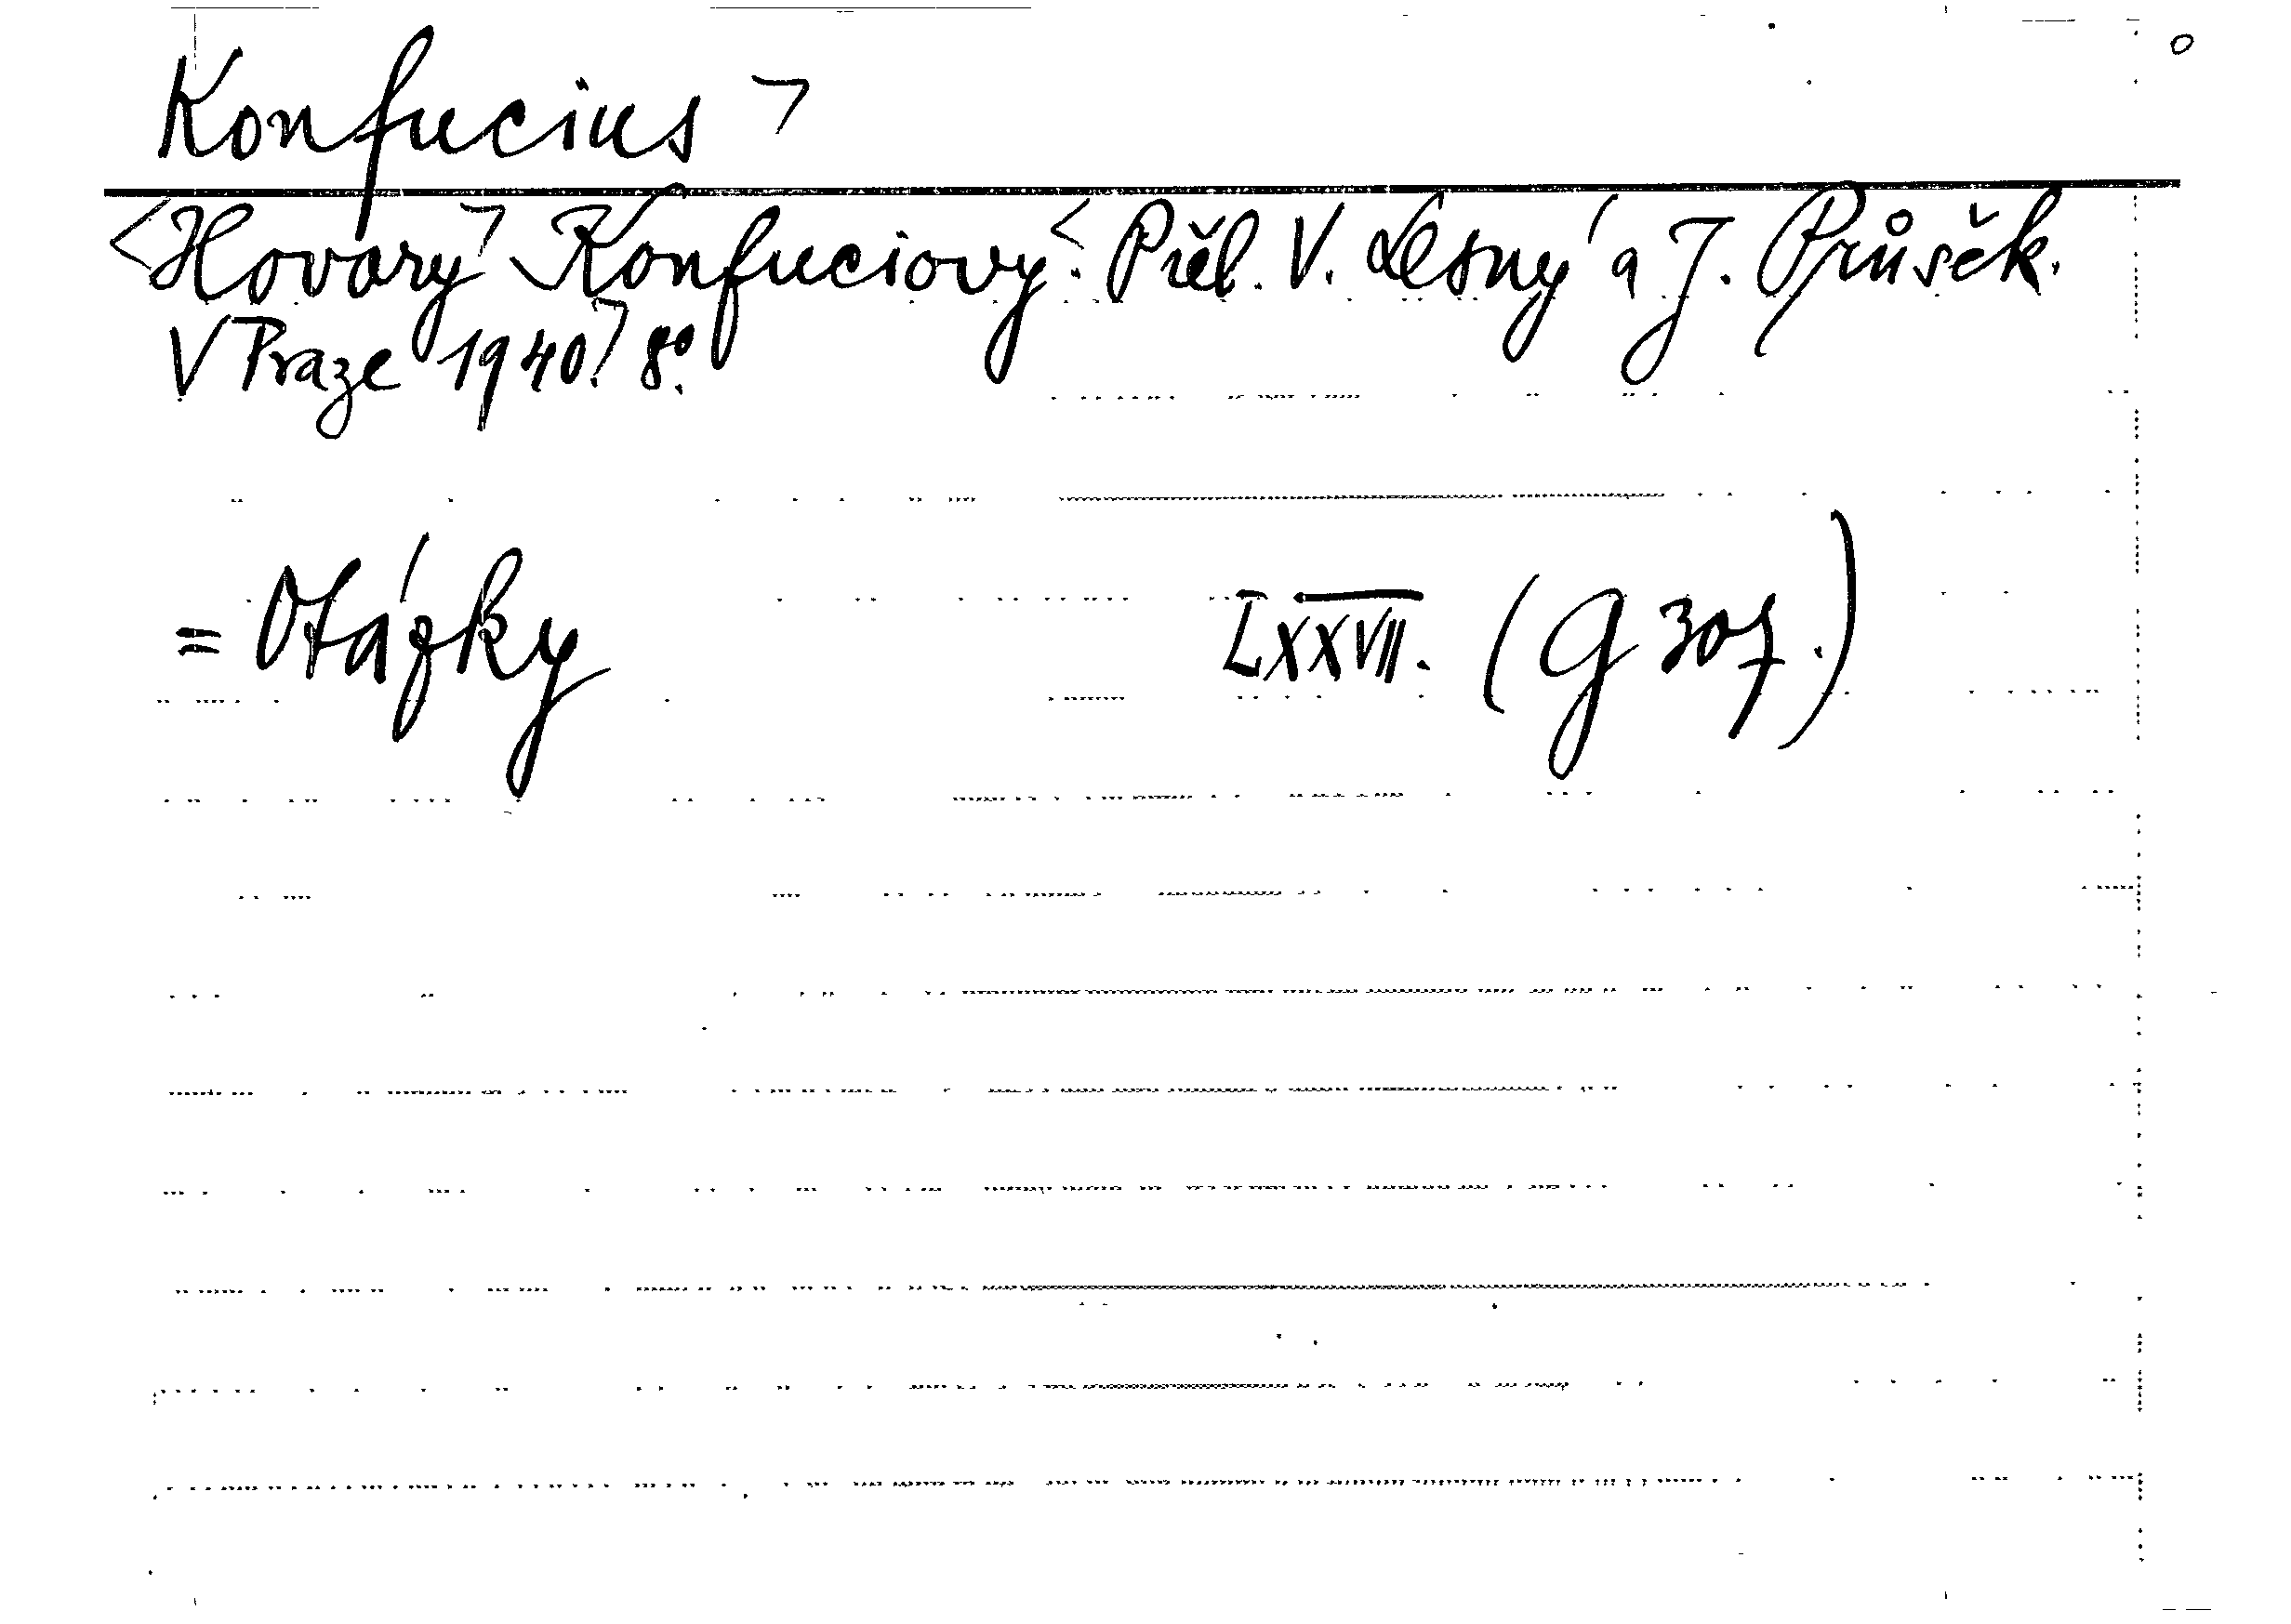 Konfucius ¬
<Hovory¬ Konfuciovy<. Přel. V. Lesný a J. Průšek.
V Praze 1940.¬ 8°.
= Otázky LXXVII. (G 307.)